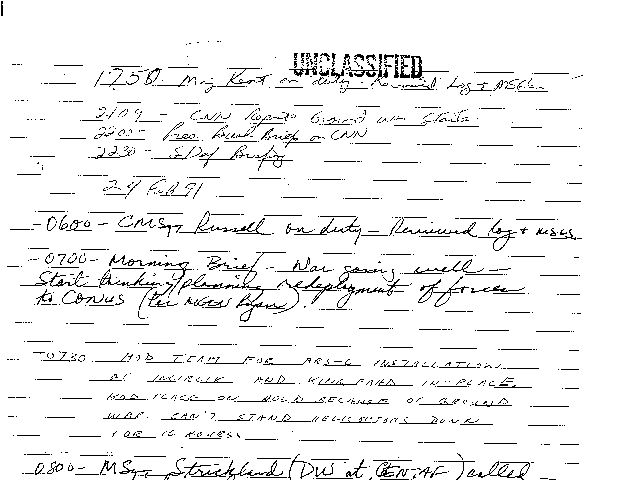 UNCLASSIFIED
1750 Maj Kent on duty - Reviewed Log + MSGs
2109 - CNN Reports Ground War Starts
2200 - Pres. Brief on CNN
2230 - SDef Briefing
24 Feb 91
-0600 - CMSgt Russell on duty - Reviewed log + MSGS
-0700 - Morning Brief - War going well -
Start thinking/planning redeployment of forces
to CONUS (Per MGEN Ryan).
-0730 MOD TEAM FOR INSTALLATION
AT INCIRLIK AND KING FAHD IN PLACE.
MOD PLACE ON HOLD BECAUSE OF GROUND
WAR. CAN'T STAND HELICOPTORS DOWN
FOR 16 HOURS.
0800 - MSgt Strickland (DW at CENTAF) called